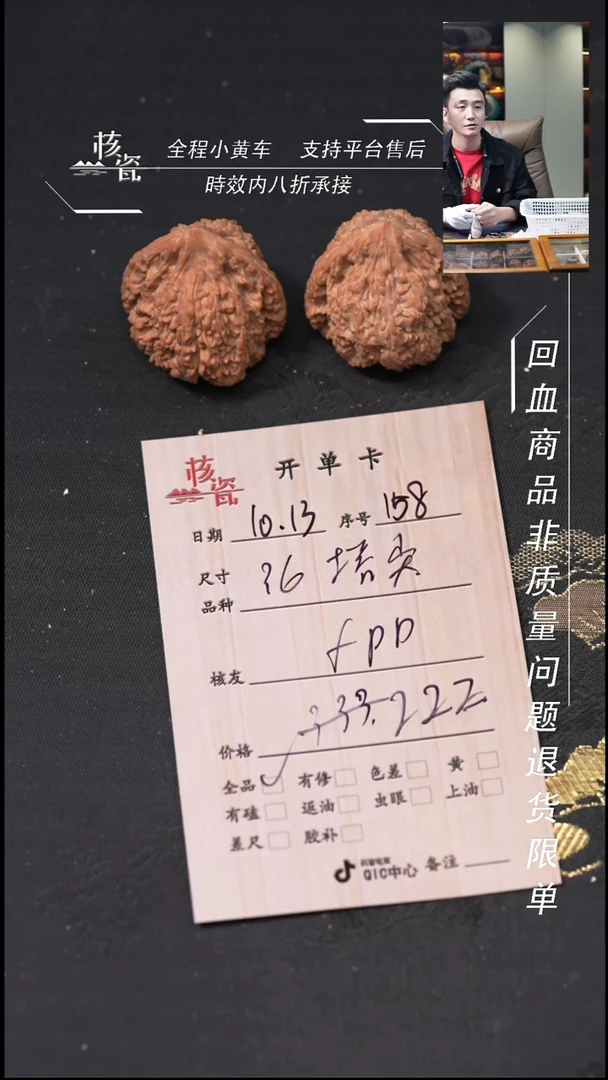 核瓷
全程小黄车 支持平台售后
時效内八折承接
回血商品非质量问题退货限单
核瓷
开单卡
日期 10.13 序号 158
尺寸 36
品种
核友 fpp
价格 333.222
全品 ✓ 有修 色差 黄
有磕 返油 虫眼 上油
差尺 胶补
抖音电商
QIC中心 备注